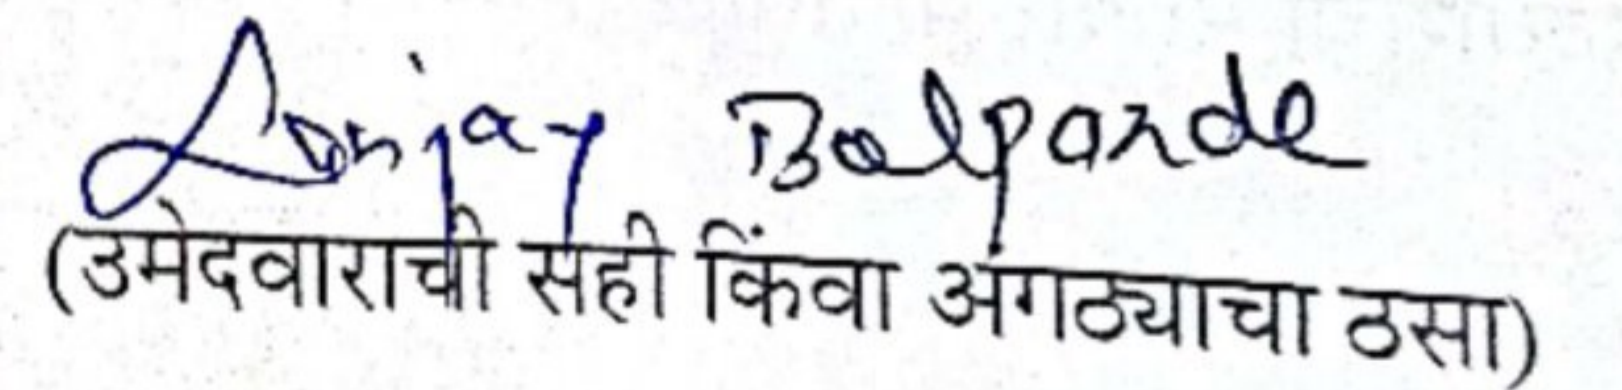 Sanjay Balpande
(उमेदवाराची सही किंवा अंगठ्याचा ठसा)